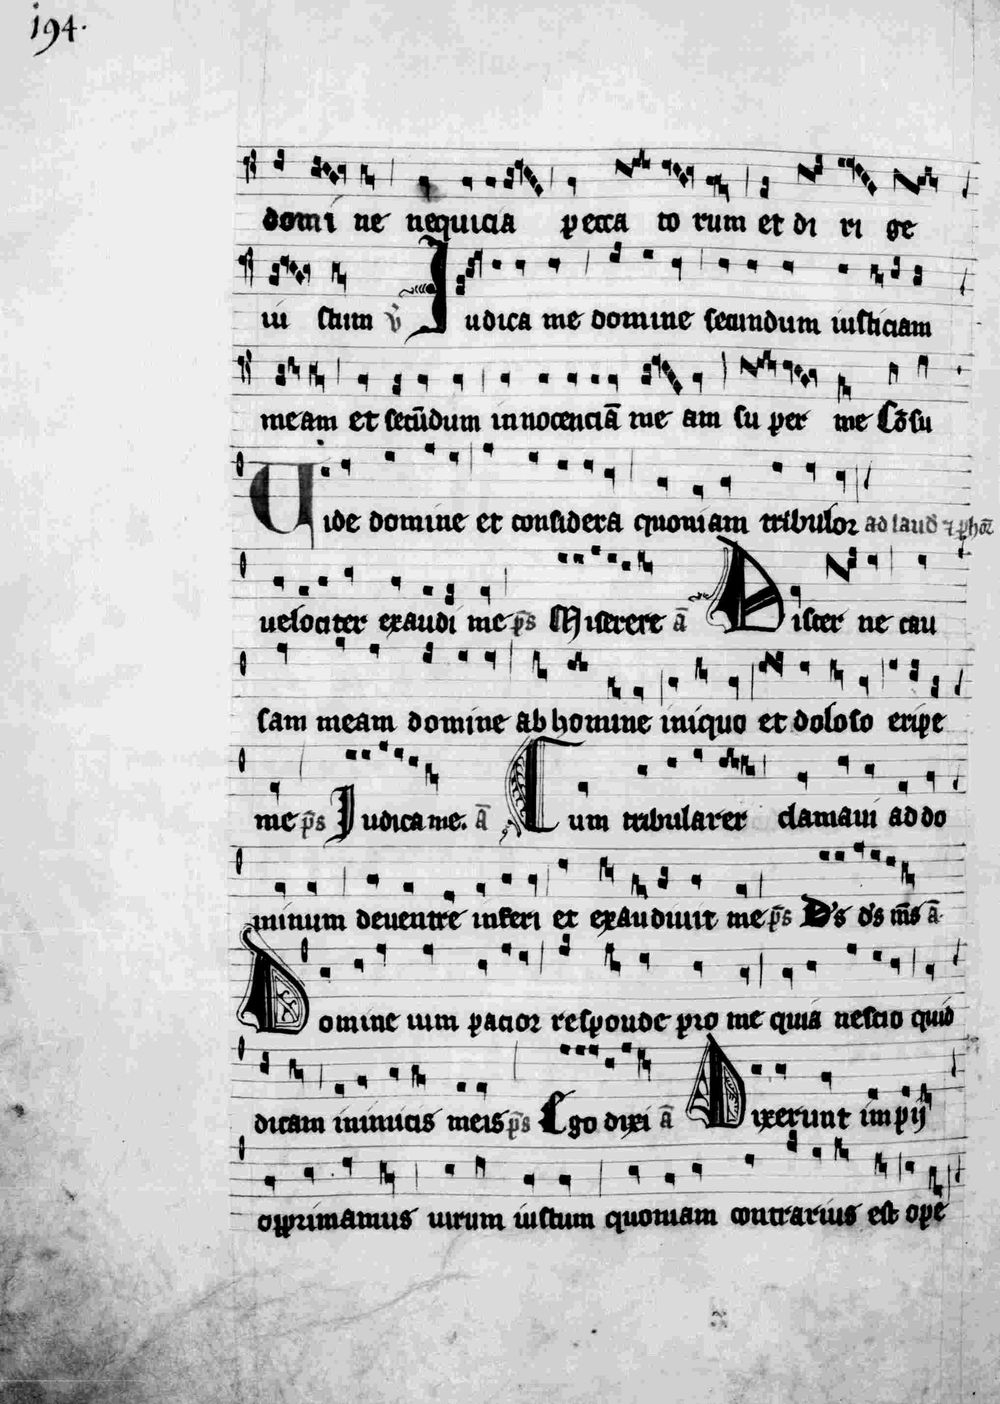 194.
domi ne nequicia pecca to rum et di ri ge
iu stum v̄ Iudica me domine secundum iusticiam
meam et secūdum innocenciā me am su per me Cōsu
Vide domine et considera quoniam tribulor ad laud
uelociter exaudi me p̄s Miserere ā Discer ne cau
sam meam domine ab homine iniquo et doloso eripe
me p̄s Iudica me. ā Cum tribularer clamaui ad do
minum deuentre inferi et exaudiuit me p̄s D's d's m̄s ā
Domine uim pacior responde pro me quia nescio quid
dicam inimicis meis p̄s Ego dixi ā Dixerunt impij
opprimamus uirum iustum quoniam contrarius est ope